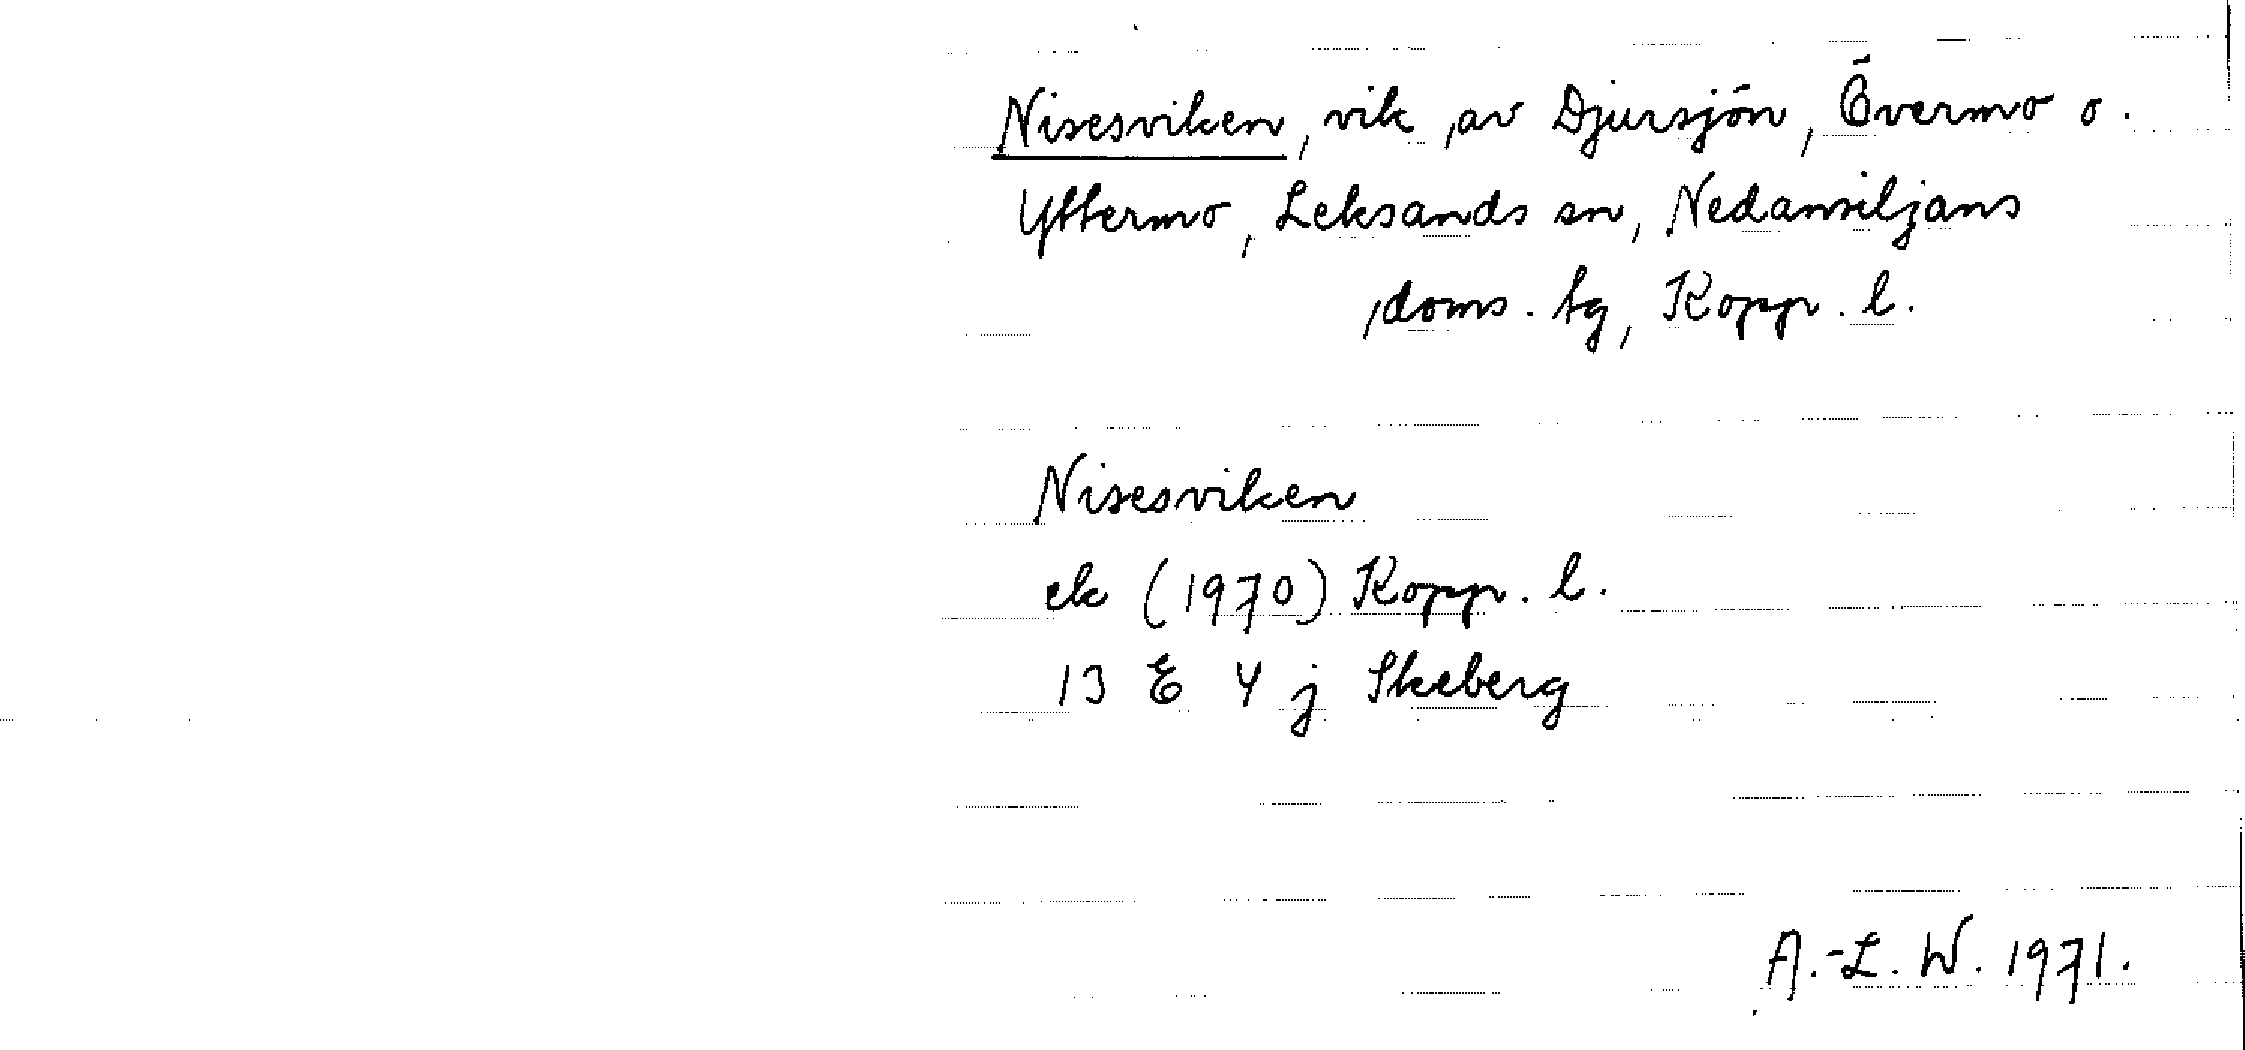 Nisesviken, vik av Djursjön, Övermo o.
Yttermo, Leksands sn, Nedansiljans
doms. tg, Kopp. l.
Nisesviken
ek (1970) Kopp. l.
13 E 4 j Skeberg
A.-L. W. 1971.